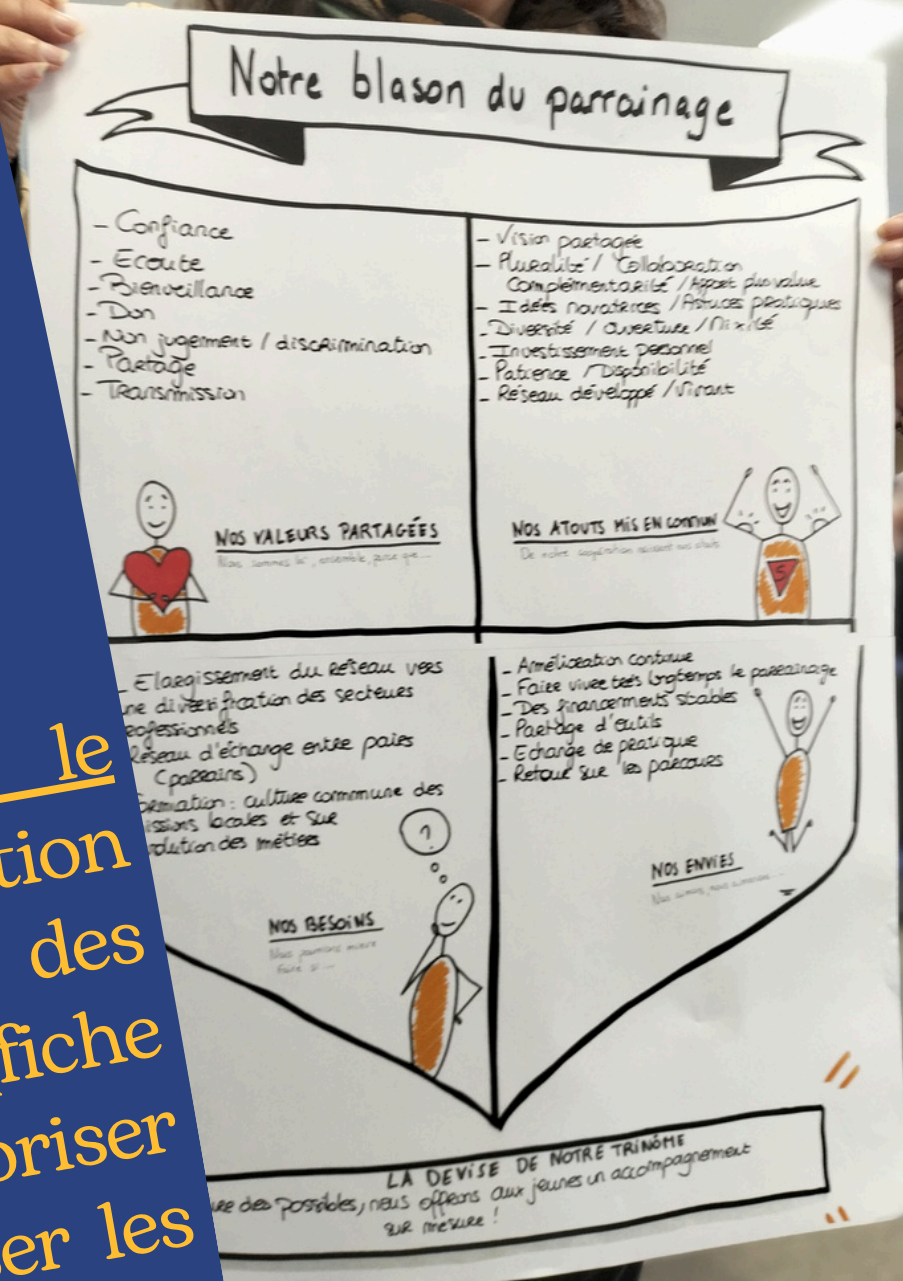 Notre blason du parrainage
- Confiance
- Ecoute
- Bienveillance
- Don
- Non jugement / discrimination
- Partage
- Transmission
NOS VALEURS PARTAGÉES
Nous sommes là, ensemble, parce que...
- Vision partagée
- Pluralité / Collaboration
Complémentarité / Apport plus value
- Idées novatrices / Astuces pratiques
- Diversité / Ouverture / Mixité
- Investissement personnel
- Patience / Disponibilité
- Réseau développé / Vivant
NOS ATOUTS MIS EN COMMUN
De notre coopération naissent nos atouts
S
- Elargissement du réseau vers
ne diversification des secteurs
rofessionnels
Réseau d'échange entre paies
(parrains)
ormation : culture commune des
issions locales et sur
olution des métiers
?
NOS BESOINS
Nous pourrions mieux
faire si ...
- Amélioration continue
- Faire vivre très longtemps le parrainage
- Des financements stables
- Partage d'outils
- Echange de pratique
- Retour sur les parcours
NOS ENVIES
LA DEVISE DE NOTRE TRINÔME
des possibles, nous offrons aux jeunes un accompagnement
sur mesure !
le
tion
des
fiche
oriser
er les